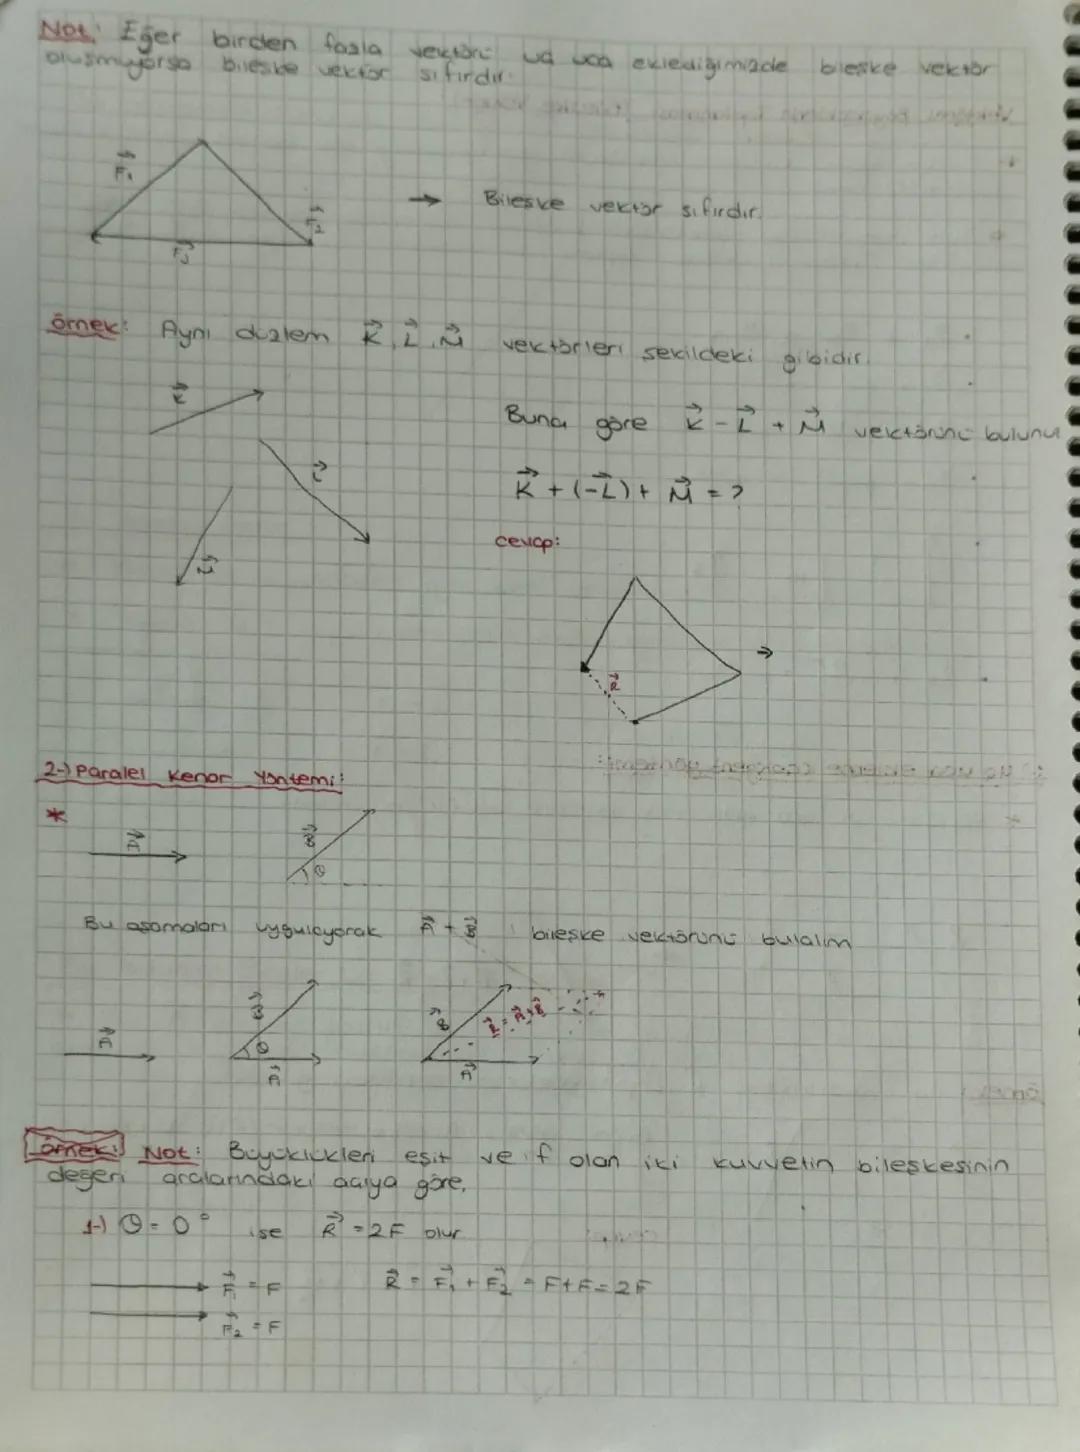 Not: Eğer birden fazla vektörü uç uca eklediğimizde bileşke vektör
oluşmuyorsa bileşke vektör sıfırdır.
F₁
F₂
F₃
→ Bileşke vektör sıfırdır.
örnek: Aynı düzlem K, L, M vektörleri şekildeki gibidir.
K
L
M
Buna göre K - L + M vektörünü bulunuz
K + (-L) + M = ?
cevap:
R
2-) Paralel Kenar Yöntemi:
* A
B
θ
Bu aşamaları uygulayarak A + B bileşke vektörünü bulalım
A
B
θ
A
B
R = A + B
A
örnek: Not: Büyüklükleri eşit ve f olan iki kuvvetin bileşkesinin
değeri aralarındaki açıya göre,
1-) θ = 0° ise R = 2F olur
F₁ = F
R = F₁ + F₂ = F+F = 2F
F₂ = F